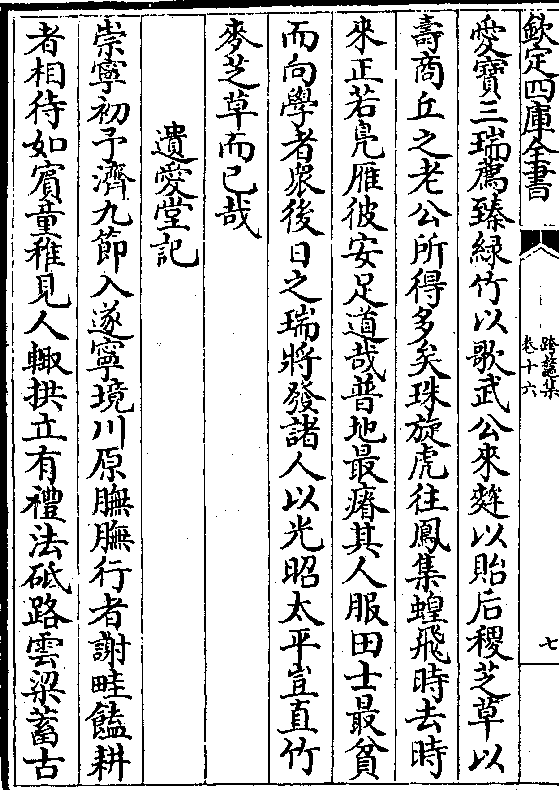 欽定四庫全書
跨鼇集
卷十六
七
愛寶三瑞薦臻緑竹以歌武公來麰以貽后稷芝草以
壽商丘之老公所得多矣珠旋虎往鳳集蝗飛時去時
來正若鳬雁彼安足道哉普地最瘠其人服田士最貧
而向學者衆後日之瑞將發諸人以光昭太平豈直竹
麥芝草而已哉
遺愛堂記
崇寧初予濟九節入遂寧境川原膴膴行者謝畦饁耕
者相待如賓童稚見人輙拱立有禮法砥路雲梁蓄古